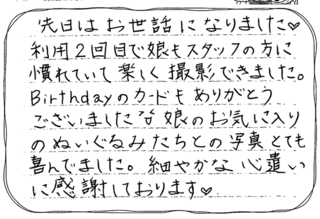 先日はお世話になりました♡
利用2回目で娘もスタッフの方に
慣れていて楽しく撮影できました。
Birthdayのカードもありがとう
ございました 娘のお気に入り
のぬいぐるみたちとの写真とても
喜んでました。細やかな心遣い
に感謝しております♡